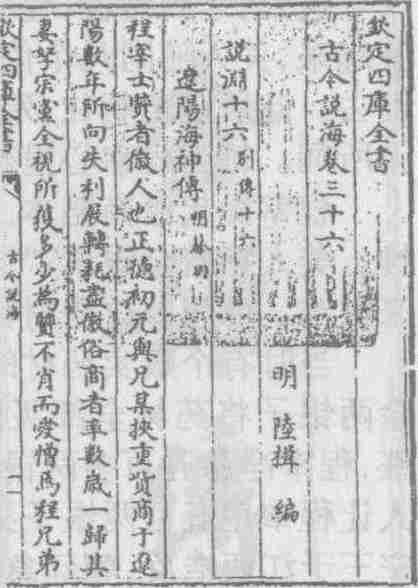 欽定四庫全書
古今說海卷三十六
明 陸揖 編
說淵十六 別傳十六
遼陽海神傳 明蔡羽
程宰士賢者徽人也正德初元與兄某挾重貲商于遼
陽數年所向失利展轉耗盡徽俗商者率數歲一歸其
妻孥宗黨全視所獲多少為賢不肖而愛憎焉程兄弟
欽定四庫全書
古今說海
一